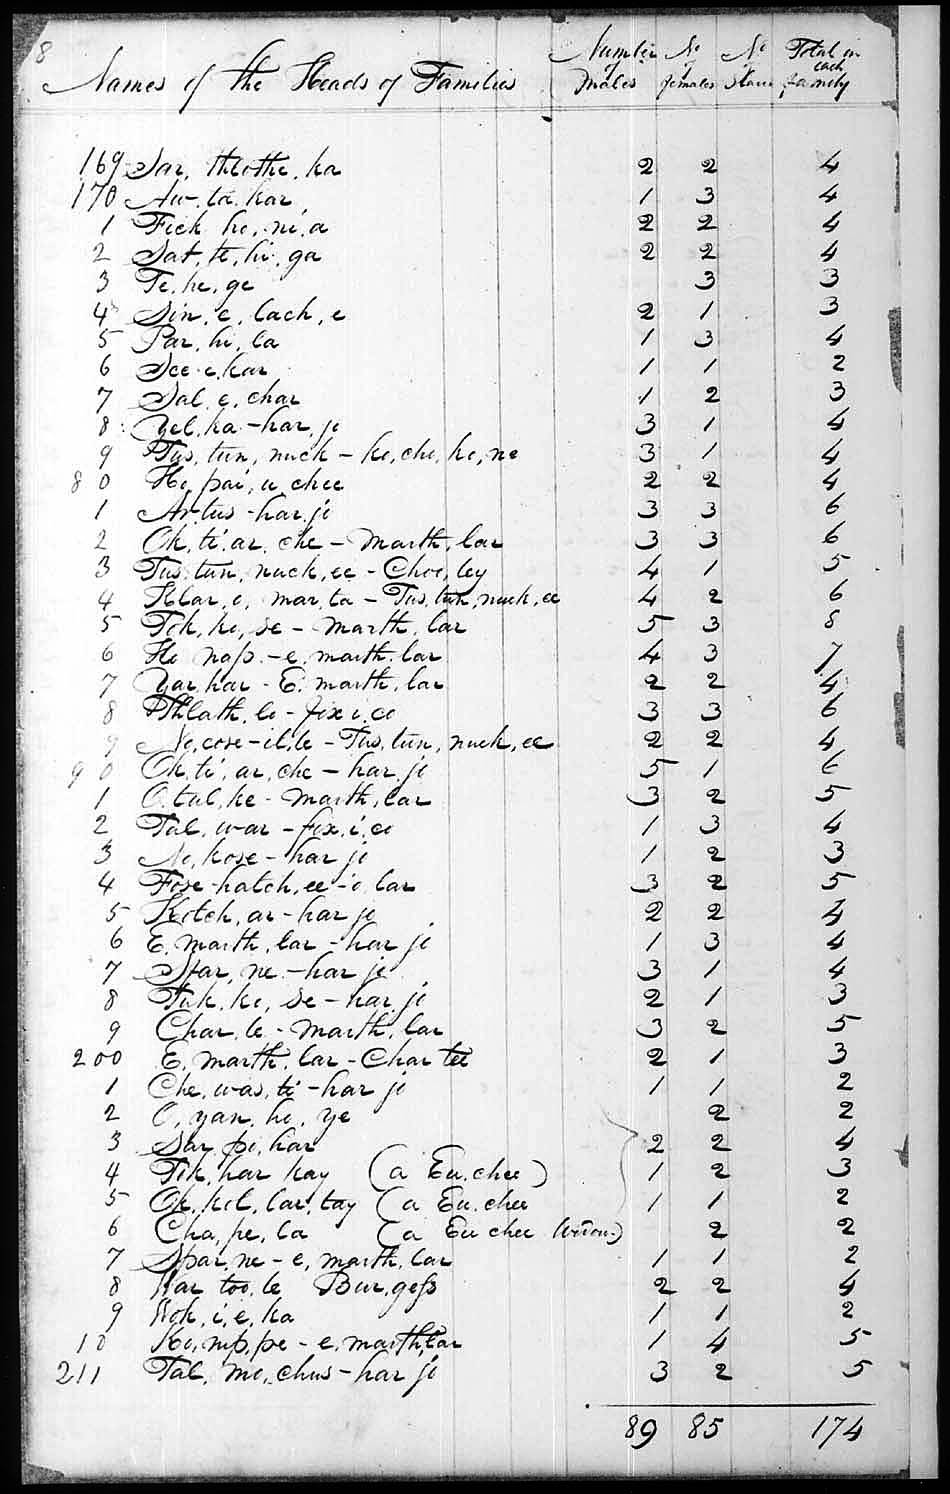 8
Names of the Heads of Families Number of Males No of females No Slaves Total in each family
169 Sar, thlothe, ka 2 2 4
170 Au, ta, kar 1 3 4
1 Fick ho, ni, a 2 2 4
2 Sat, te, hi, ga 2 2 4
3 Te, he, ge 3 3
4 Sin, e, lach, e 2 1 3
5 Par, hi, la 1 3 4
6 See e, kar 1 1 2
7 Sal, e, char 1 2 3
8 Yel, ka - har, jo 3 1 4
9 Tus, tun, nuck - ko, cho, ko, ne 3 1 4
80 Ho, pai, u chee 2 2 4
1 Ar, tus - har, jo 3 3 6
2 Ok, ti, ar, che - Marth, lar 3 3 6
3 Tus, tun, nuck, ee - Choo, ley 4 1 5
4 Klar, o, mar, ta - Tus, tun, nuck, ee 4 2 6
5 Tok, ko, se - Marth, lar 5 3 8
6 Ho nap - e, marth, lar 4 3 7
7 Yar, har - E, marth, lar 2 2 4
8 Thlath, lo - fix i, co 3 3 6
9 No, cose - il, le - Tus, tun, nuck, ee 2 2 4
90 Ok, ti, ar, che - har, jo 5 1 6
1 O, tul, ke - Marth, lar 3 2 5
2 Tal, war - fix, i, co 1 3 4
3 No, kose - har jo 1 2 3
4 Fose - hatch, ee - o, lar 3 2 5
5 Kotch, ar - har jo 2 2 4
6 E, marth, lar - har jo 1 3 4
7 Spar, ne - har jo 3 1 4
8 Tuk, ko, se - har, jo 2 1 3
9 Char, le - Marth, lar 3 2 5
200 E, marth, lar - Char tee 2 1 3
1 Che, was, ti - har jo 1 1 2
2 O, yan, ho, ye 2 2
3 Sar, po, har 2 2 4
4 Tik, har kay (a Eu, chee) 1 2 3
5 Ok, kil, lar, tay (a Eu, chee 1 1 2
6 Cha, pe, la (a Eu chee Widow) 2 2
7 Spar, ne - e, marth, lar 1 1 2
8 War, too, le Bur, gess 2 2 4
9 Wok, i, e, ka 1 1 2
10 Ko, nip, pe - e, marth, lar 1 4 5
211 Tal, mo, chus - har jo 3 2 5
89 85 174